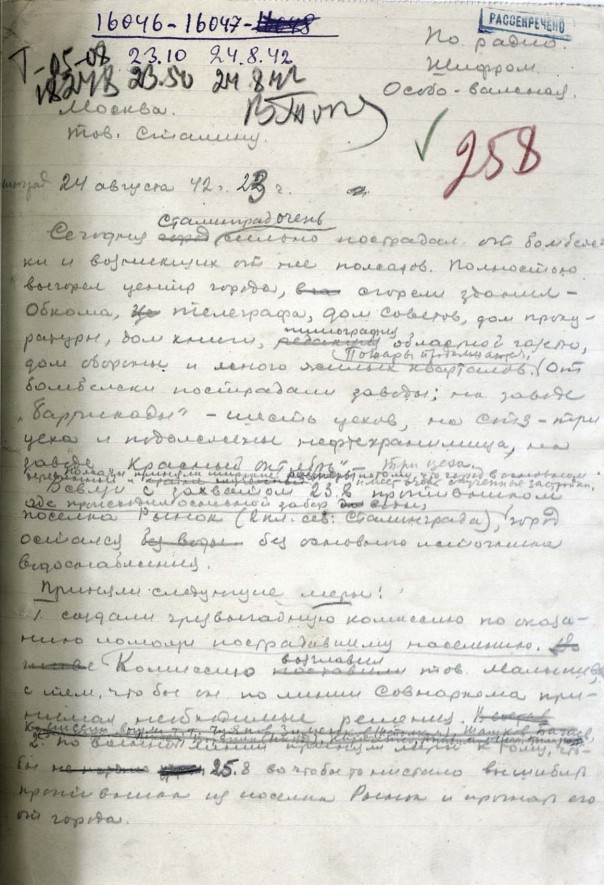 16046-16047-16048
РАССЕКРЕЧЕНО
23.10 24.8.42
По радио
Т-05-08
Шифром.
23.50 24 8 42
Особо-важная
Москва.
Тов. Сталину.
258
24 августа 42 г. 23 ч.
Сталинград очень
Сегодня город сильно пострадал от бомбежки
ки и возникших от нее пожаров. Полностью
выгорел центр города, сгорели здания-
Обкома, телеграфа, дом советов, дом проку-
типография
ратуры, дом книги, редакция областной газеты,
Пожары продолжаются.
дом обороны и много жилых кварталов. От
бомбежки пострадали заводы; на заводе
"Баррикады" - шесть цехов, на СТЗ - три
цеха и подожжены нефтехранилища, на
заводе "Красный октябрь" - три цеха.
потому, что город в основном
имеет очень скученные застройки,
В связи с захватом 23.8 противником
где происходил основной забор воды,
поселка Рынок (2 кл. сев. Сталинграда), город
остался без воды без основного источника
водоснабжения.
Приняли следующие меры:
1. создали чрезвычайную комиссию по оказа-
нию помощи пострадавшему населению.
возглавил
Комиссию поставили тов. Малышев
с тем, чтобы он по линии Совнаркома при-
нимал необходимые решения.
2. По военной линии приняли меры к тому, что-
бы 25.8 во чтобы то ни стало вышибить
противника из поселка Рынок и прогнать его
от города.